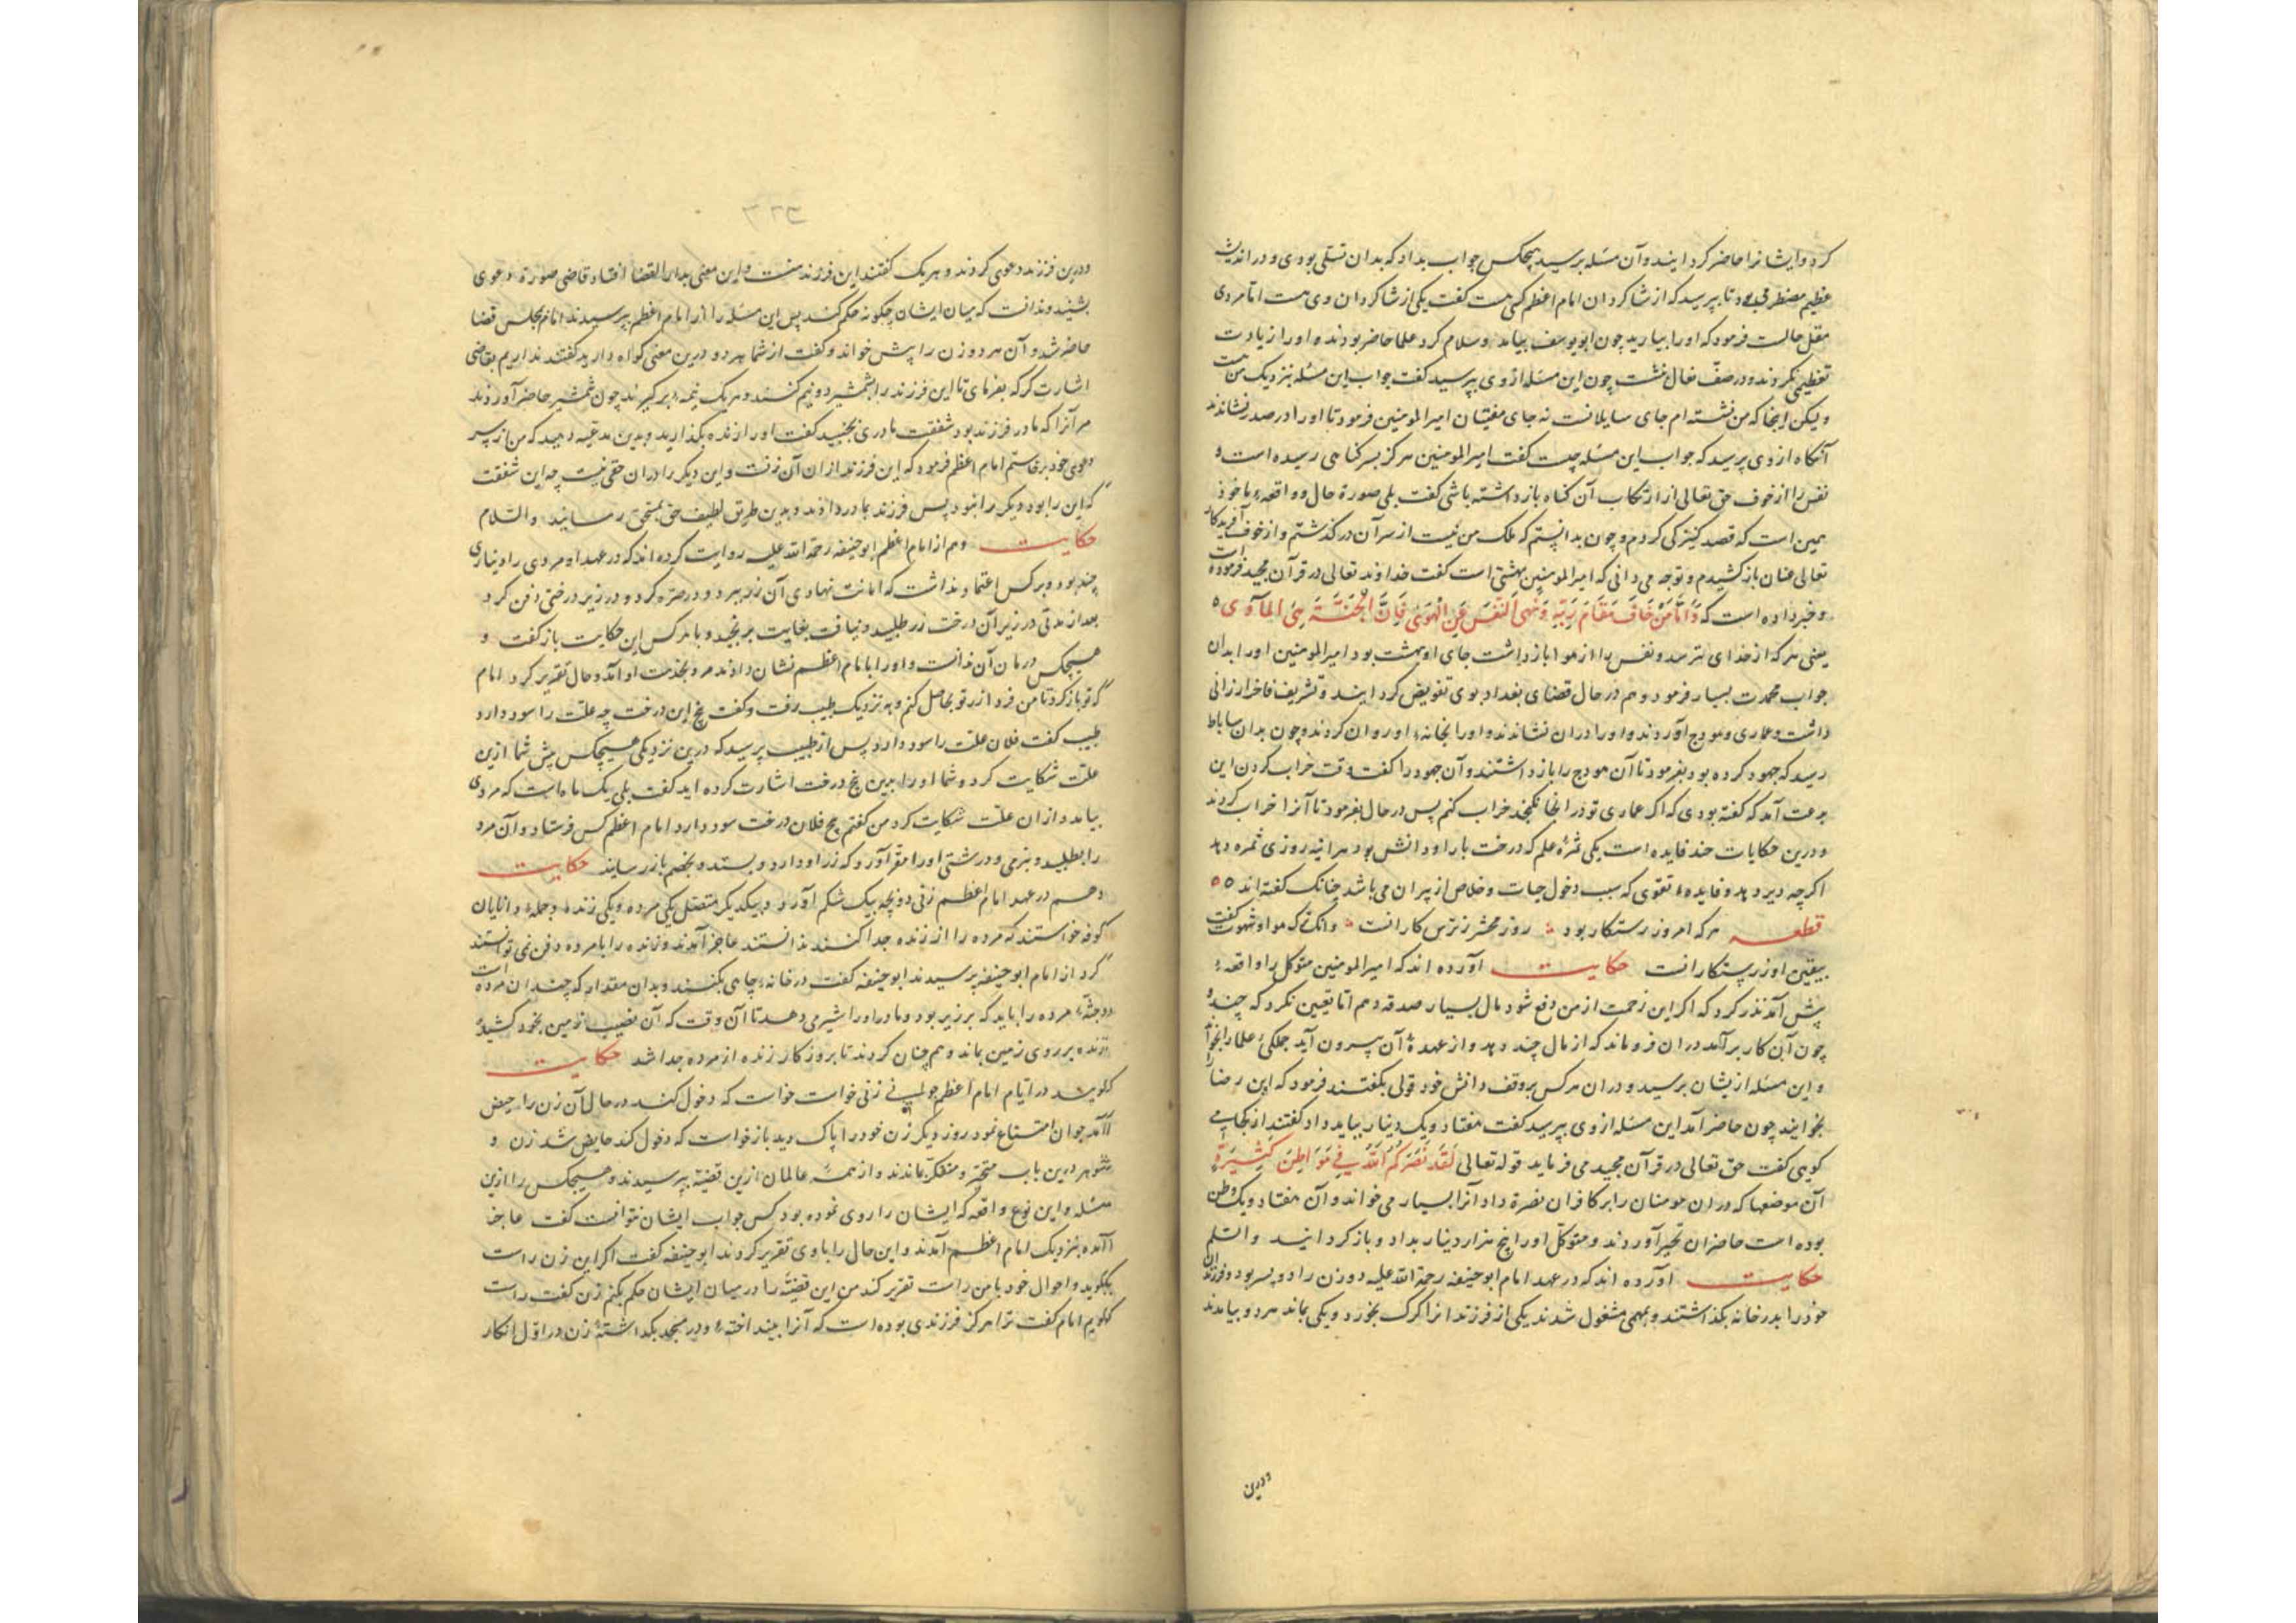 کرد و ایشانرا حاضر کردایند و آن مسئله برسید هیچکس جواب بداد که بدان تسلی بودی و در اندیشه
عظیم مضطرب می بود تا بپرسید که از شاکردان امام اعظم کسی هست کفت یکی از شاکردان وی هست اما مردی
مقل حالست فرمود که او را بیارید چون ابویوسف بیامد و سلام کرد علما حاضر بودند و او را زیادت
تعظیمی نکردند و در صف نعال بنشست چون این مسئله از وی بپرسید کفت جواب این مسئله بنزدیک من هست
ولیکن اینجا که من نشسته ام جای سایلانست نه جای مفتیان امیرالمومنین فرمود تا او را در صدر نشاندند
آنکاه از وی پرسید که جواب این مسئله چیست کفت امیرالمومنین هرکز بسر کناهی رسیده است و
نفس را از خوف حق تعالی از ارتکاب آن کناه باز داشته باشی کفت بلی صورة حال و واقعهٔ ما خود
همین است که قصد کنیزکی کردم و چون بدانستم که ملک من نیست از سر آن درکذشتم و از خوف آفریدکار
تعالی عنان باز کشیدم و توجه می دانی که امیرالمومنین بهشتی است کفت خداوند تعالی در قرآن مجید فرموده است
و خبر داده است که وَاَمَّا مَنْ خَافَ مَقَامَ رَبِّهِ وَنَهَى النَّفْسَ عَنِ الْهَوَى فَاِنَّ الْجَنَّةَ هِیَ الْمَأْوَى
یعنی هرکه از خدای بترسد و نفس را از هوا باز داشت جای او بهشت بود امیرالمومنین او را بدان
جواب محمدت بسیار فرمود و هم در حال قضای بغداد بوی تفویض کردایند و تشریف فاخر ارزانی
داشت و عماری و هودج آوردند و او را دران نشاندند و او را بخانهٔ او روان کردند و چون بدان ساباط
رسید که جهود کرده بود بفرمود تا آن هودج را باز داشتند و آن جهود را کفت وقت خراب کردن این
بدعت آمد که کفته بودی که اکر عماری تو در اینجا نکنجد خراب کنم پس در حال بفرمود تا آنرا خراب کردند
و درین حکایات چند فایده است یکی ثمرهٔ علم که درخت بار او دانش بود هراینه روزی ثمره دهد
اکرچه دیر دهد و فایدهٔ تقوی که سبب دخول جنات و خلاص از نیران می باشد چنانک کفته اند
قطعه هرکه امروز رستکار بود روز محشر ز ترس کارانست وانکه ترک هوا و شهوت کفت
بیقین او ز رستکارانست حکایت آورده اند که امیرالمومنین متوکل را واقعهٔ
پیش آمد نذر کرد که اکر این زحمت از من دفع شود مال بسیار صدقه دهم اما تعیین نکرد که چند و
چون آن کار برآمد دران فروماند که از مال چند دهد و از عهدهٔ آن بیرون آید جملکی علما را بخواند
و این مسئله ازیشان برسید و دران هرکس بروفق دانش خود قولی بکفتند فرمود که ابن رضا را
بخوانید چون حاضر آمد این مسئله از وی بپرسید کفت هفتاد و یک دینار بباید داد کفتند از کجا می
کویی کفت حق تعالی در قرآن مجید می فرماید قوله تعالی لَقَدْ نَصَرَكُمُ اللَّهُ فِی مَوَاطِنَ كَثِیرَةٍ
آن موضعها که دران مومنان را بر کافران نصرة داد آنرا بسیار می خواند و آن هفتاد و یک وطن
بوده است حاضران تحیر آوردند و متوکل او را پنج هزار دینار بداد و باز کردانید والسلم
حکایت آورده اند که در عهد امام ابوحنیفه رحمة الله علیه دو زن را دو پسر بود و فرزندان
خود را بدر خانه بکذاشتند و بمهمی مشغول شدند یکی از فرزندانرا کرک بخورد و یکی بماند هر دو بیامدند
ودرین
ودرین فرزند دعوی کردند و هریک کفتند این فرزند منست و این معنی بدارالقضا افتاد قاضی صورة دعوی
بشنید و ندانست که میان ایشان چکونه حکم کند پس این مسئله را از امام اعظم بپرسیدند امام بمجلس قضا
حاضر شد و آن هر دو زن را پیش خواند و کفت از شما هر دو درین معنی کواه دارید کفتند نداریم بقاضی
اشارت کرد که بفرمای تا این فرزند را بشمشیر دو نیم کنند و هریک نیمه برکیرند چون شمشیر حاضر آوردند
مر آنرا که مادر فرزند بود شفقت مادری بجنبید کفت او را زنده بکذارید و بدین مدعیه دهید که من از سر
دعوی خود برخاستم امام اعظم فرمود که این فرزند ازان آن زنست و این دیکر را دران حقی نیست چه این شفقت
که این را بود دیکر را نبود پس فرزند بمادر دادند و بدین طریق لطیف حق بمستحق رسانید والسلام
حکایت و هم از امام اعظم ابوحنیفه رحمة الله علیه روایت کرده اند که در عهد او مردی را دیناری
چند بود و بر کس اعتماد نداشت که امانت نهادی آن زر ببرد و در صره کرد و در زیر درختی دفن کرد
بعد از مدتی در زیر آن درخت زر طلبید و نیافت بغایت برنجید و با هرکس این حکایت باز کفت و
هیچکس درمان آن ندانست و او را بامام اعظم نشان دادند مرد بخدمت او آمد و حال تقریر کرد امام
کفت تو باز کرد تا من فردا زر تو حاصل کنم و به نزدیک طبیب رفت و کفت بیخ این درخت چه علت را سود دارد
طبیب کفت فلان علت را سود دارد پس از طبیب پرسید که درین نزدیکی هیچکس پیش شما ازین
علت شکایت کرد و شما او را بدین بیخ درخت اشارت کرده اید کفت بلی یک ماه است که مردی
بیامد و ازان علت شکایت کرد من کفتم بیخ فلان درخت سود دارد امام اعظم کس فرستاد و آن مرد
را بطلبید و بنرمی و درشتی او را مقر آورد که زر او دارد و بستد و بخصم باز رسانید حکایت
و هم در عهد امام اعظم زنی دو بچه بیک شکم آورد و بیکدیکر متصل یکی مرده و یکی زنده و جملهٔ دانایان
کوفه خواستند که مرده را از زنده جدا کنند ندانستند عاجز آمدند و زنده را با مرده دفن نمی توانستند
کرد از امام ابوحنیفه پرسیدند ابوحنیفه کفت در خانه چاهی بکنند و بدان مقدار که چندان مرده است
و جثهٔ مرده را باید که بر زیر بود و مادر او را شیر می دهد تا آن وقت که آن نصیب زمین بخود کشید
زنده بر روی زمین بماند و هم چنان کردند تا بروزکار زنده از مرده جدا شد حکایت
کویند در ایام امام اعظم جوانی زنی خواست خواست که دخول کند در حال آن زن را حیض
آمد جوان امتناع نمود روز دیکر زن خود را پاک دید باز خواست که دخول کند حایض شد زن و
شوهر درین باب متحیر و متفکر بماندند و از همه عالمان ازین قضیه بپرسیدند و هیچکس را ازین
مسئله و این نوع واقعه که ایشان را روی نموده بود کس جواب ایشان نتوانست کفت عاجز
آمده بنزدیک امام اعظم آمدند و این حال را باوی تقریر کردند ابوحنیفه کفت اکر این زن راست
بکوید و احوال خود با من راست تقریر کند من این قضیه را در میان ایشان حکم بکنم زن کفت راست
کویم امام کفت ترا هرکز فرزندی بوده است که آنرا بینداختهٔ و در مسجد بکذاشتهٔ زن در اول انکار